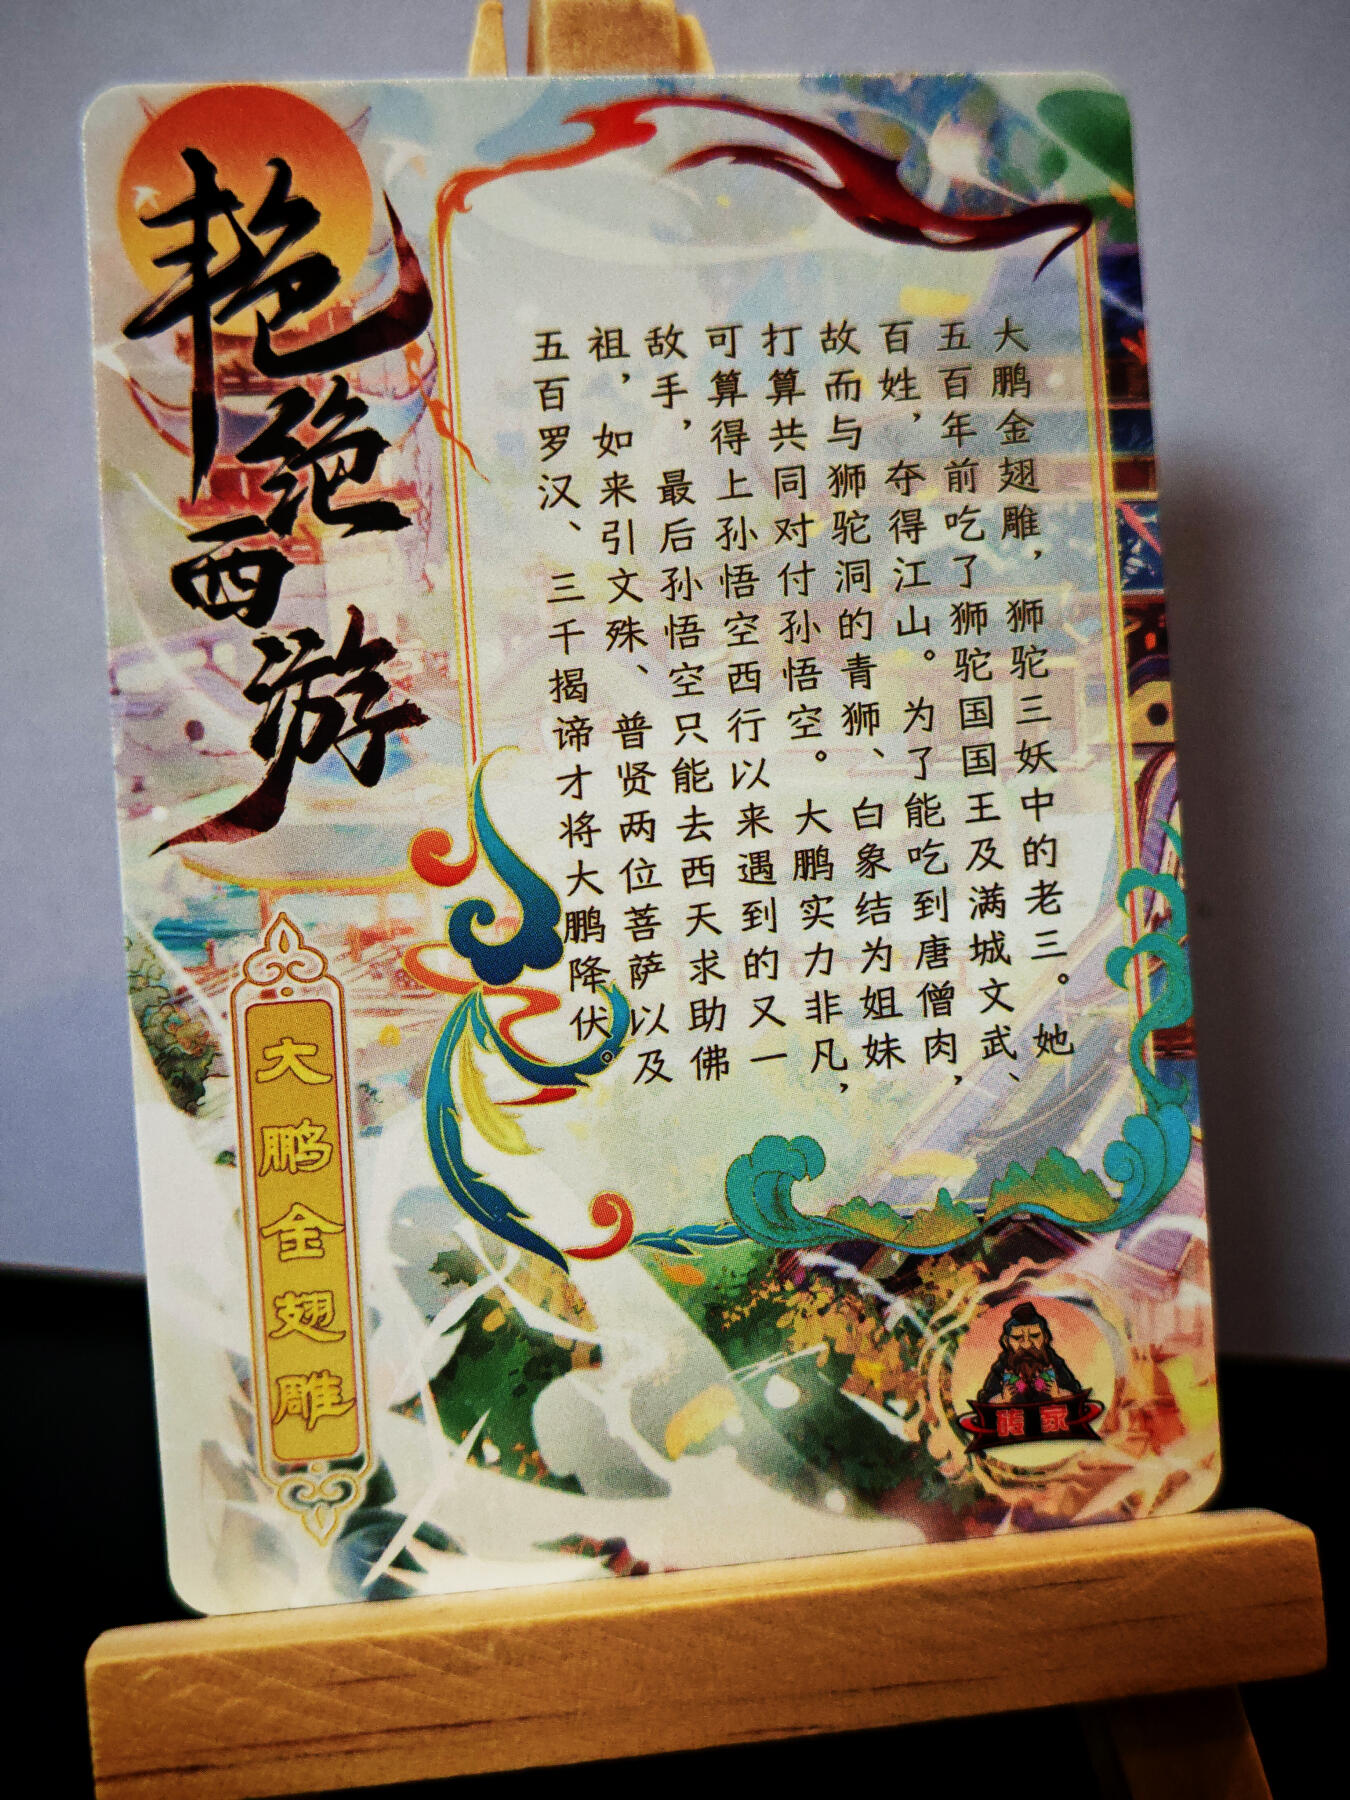 艳绝西游
大鹏金翅雕
大鹏金翅雕，狮驼三妖中的老三。她
五百年前吃了狮驼国国王及满城文武、
百姓，夺得江山。为了能吃到唐僧肉，
故而与狮驼洞的青狮、白象结为姐妹
打算共同对付孙悟空。大鹏实力非凡，
可算得上孙悟空西行以来遇到的又一
敌手，最后孙悟空只能去西天求助佛
祖，如来引文殊、普贤两位菩萨以及
五百罗汉、三千揭谛才将大鹏降伏。